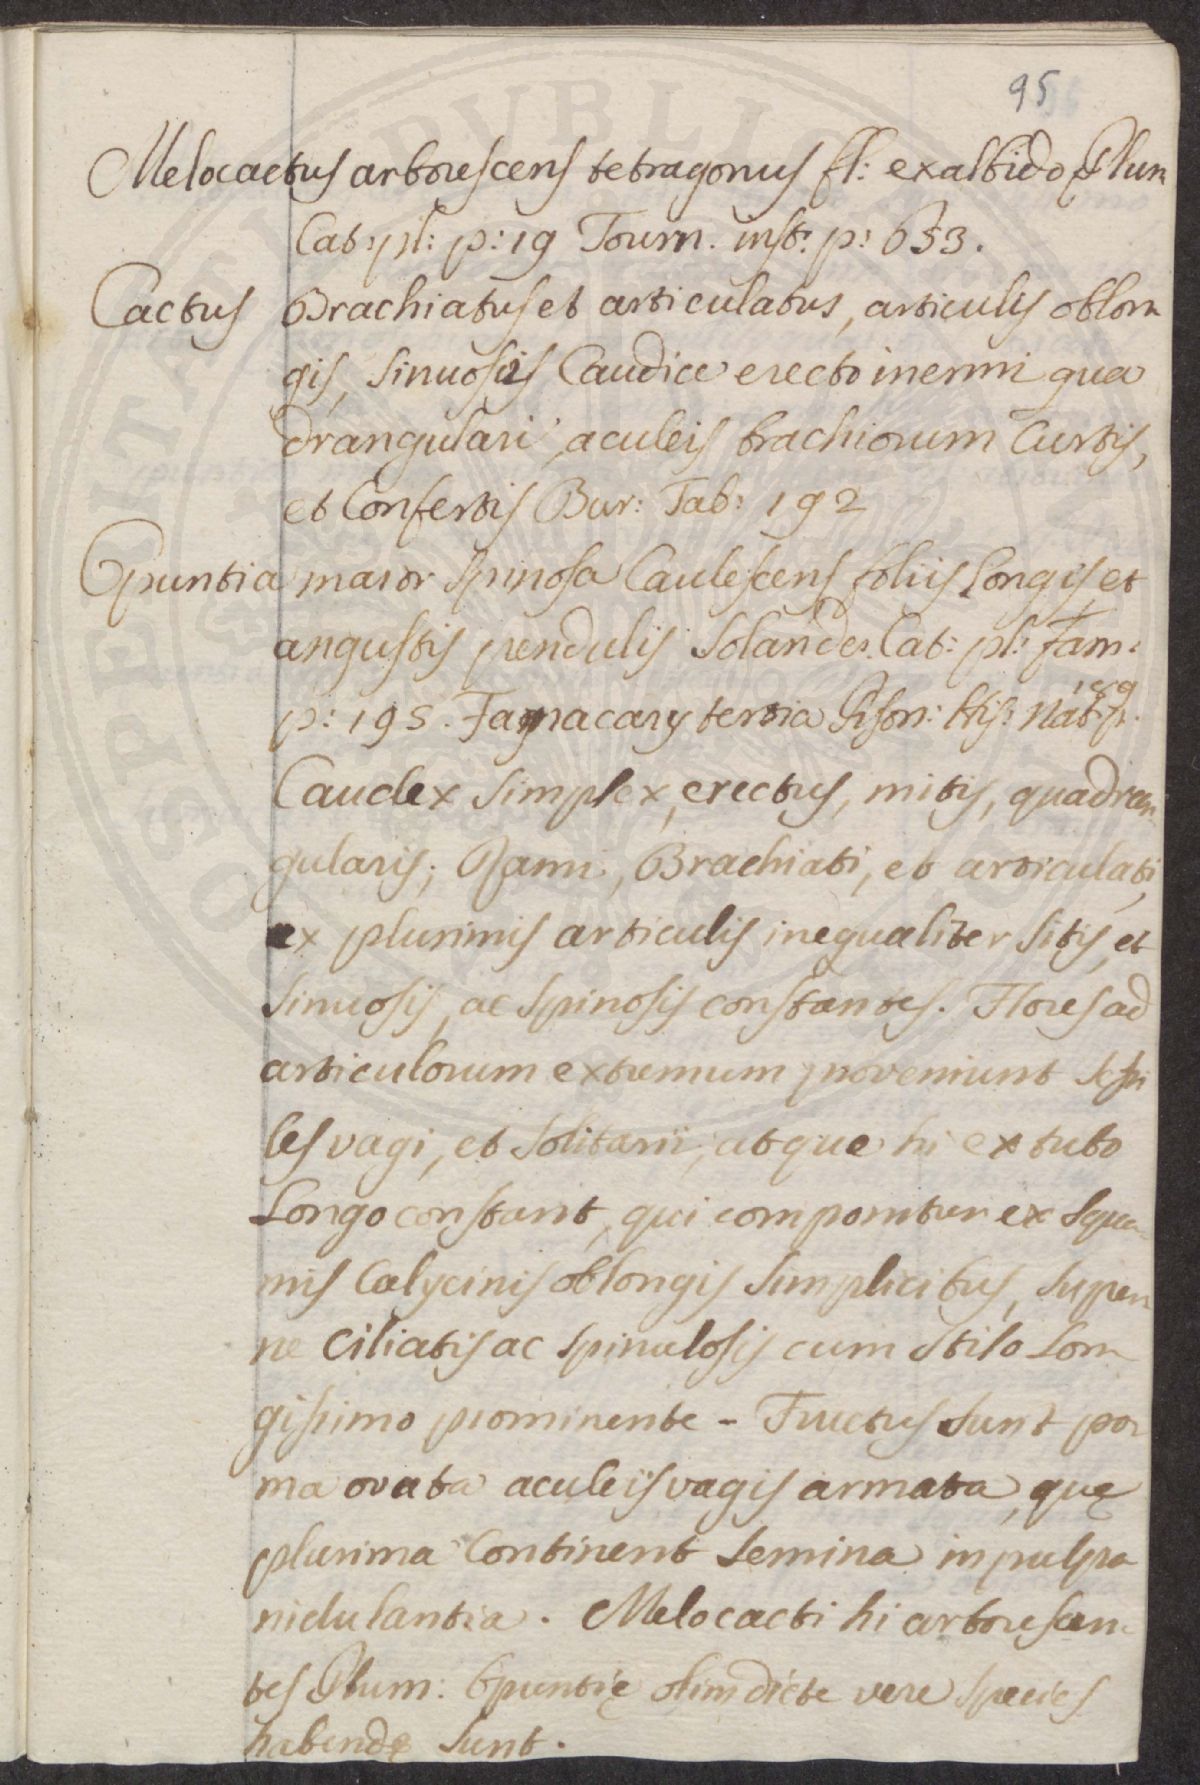 95
Melocactus arborescens tetragonus fl: exalbido Plum
Cat pl: p: 19 Tourn. inst: p: 653.
Cactus Brachiatus et articulatus, articulis oblon
gis, sinuosis Caudice erecto inermi qua
drangulari, aculeis brachiorum Curtis,
et Confertis Bur: Tab: 192
Opuntia maior Spinosa Caulescens foliis Longis, et
angustis pendulis Solander. Cat: pl: Jam.
p: 195. Jamacaru tertia Pison: His: Nat: p. 189
Caudex simplex, erectus, mitis, quadran
gularis; Rami, Brachiati, et articulati,
ex plurimis articulis inequaliter sitis, et
sinuosis, ac spinosis constantes. Flores ad
articulorum extremum proveniunt sessi
les vagi, et solitarii, atque hi ex tubo
Longo constant, qui componitur ex squa
mis Calycinis oblongis simplicibus, super
ne Ciliatis ac spinulosis cum stilo Lon
gissimo prominente - Fructus sunt po
ma ovata aculeis vagis armata, quę
plurima Continent semina in pulpa
nidulantia. Melocacti hi arborescen
tes Plum: Opuntię olim dicte vere species
habendę sunt.